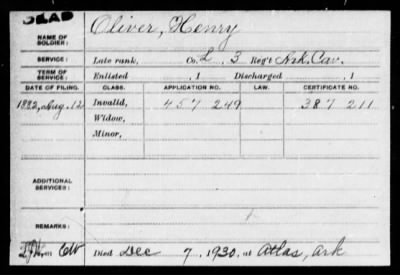 DEAD
NAME OF SOLDIER: Oliver, Henry
SERVICE: Late rank, Co. L, 3 Reg't Ark. Cav.
TERM OF SERVICE: Enlisted , 1 Discharged , 1
DATE OF FILING. CLASS. APPLICATION NO. LAW. CERTIFICATE NO.
1882, Aug. 12 Invalid, 457 249 387 211
Widow,
Minor,
ADDITIONAL SERVICES:
REMARKS:
Died Dec 7, 1930, at Atlas, Ark